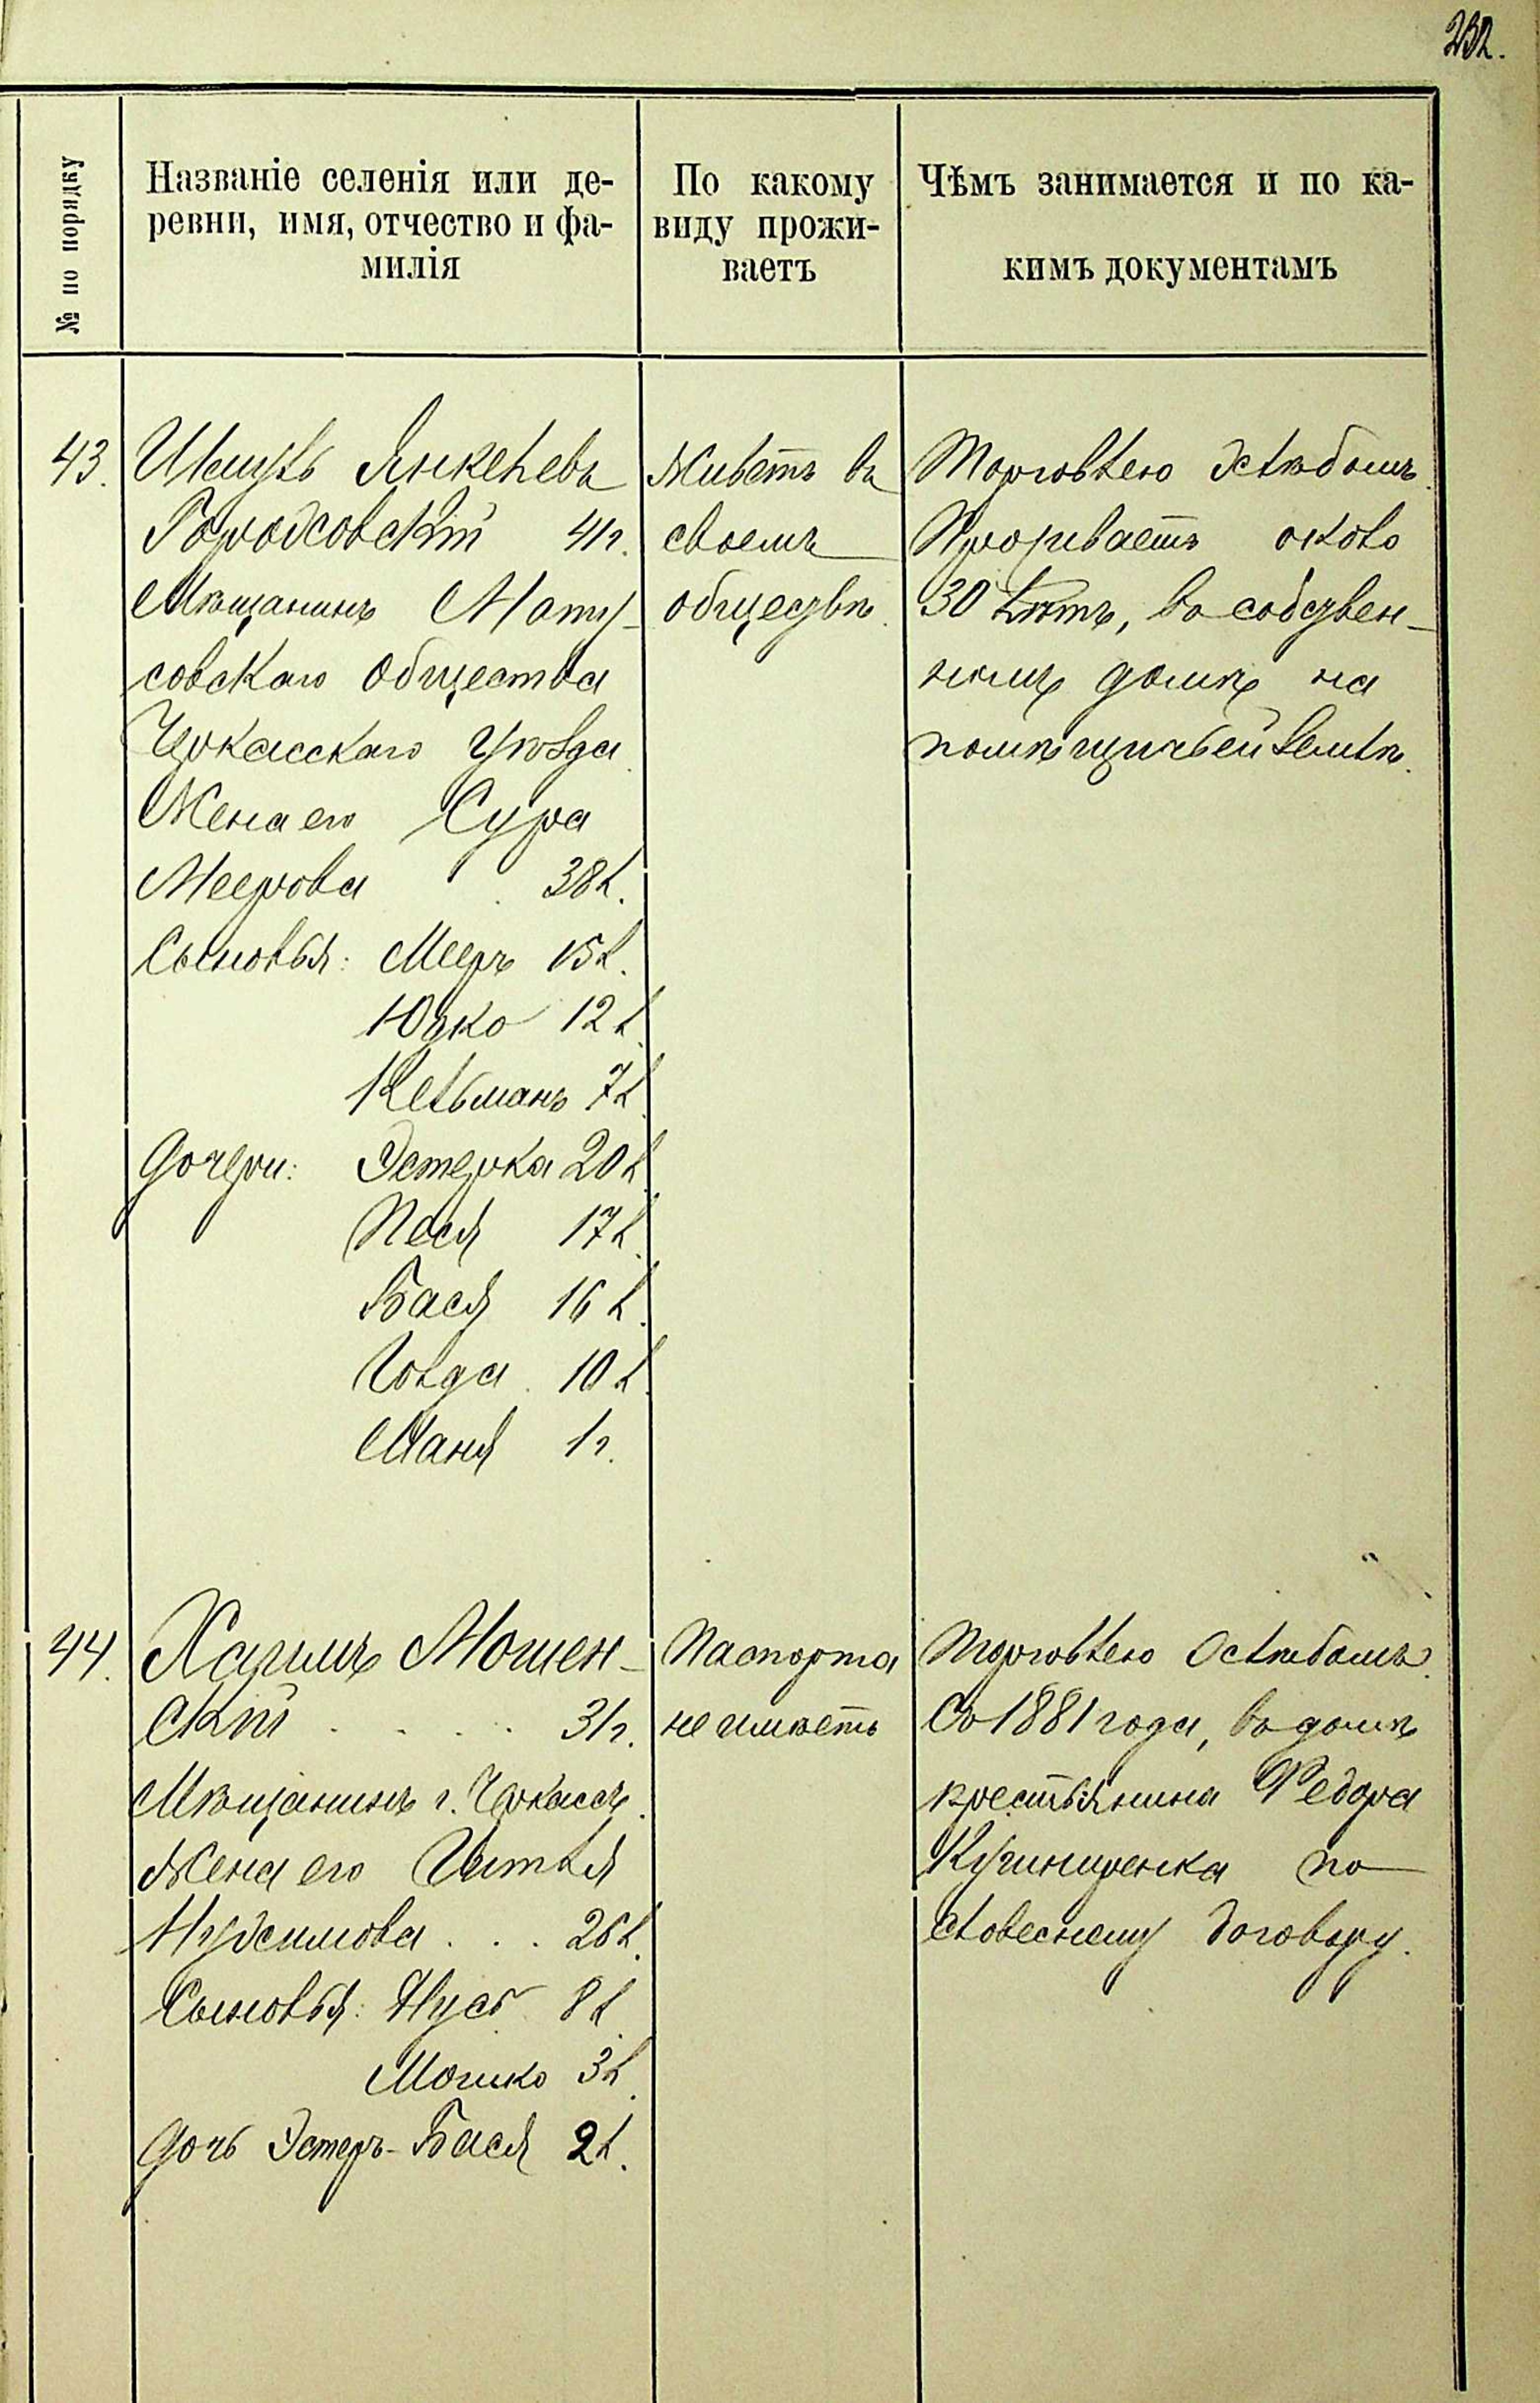 232.
№ по порядку
Названіе селенія или де-
ревни, имя, отчество и фа-
милія
По какому
виду прожи-
ваетъ
Чѣмъ занимается и по ка-
кимъ документамъ
43.
Шмуль Янкелевъ
Городсовскій 41 г.
Мѣщанинъ Мату-
совскаго общества
Черкасскаго уѣзда.
Жена его Сура
Меерова 38 л.
Сыновья: Мееръ 15 л.
Юдко 12 л.
Кельманъ 7 л.
Дочери: Эстерка 20 л.
Песя 17 л.
Бася 16 л.
Голда 10 л.
Маня 1 г.
Живетъ въ
своемъ
обществѣ.
Торговлею хлѣбомъ.
Проживаетъ около
30 лѣтъ, въ собствен-
номъ домѣ на
помѣщичьей землѣ.
44.
Хаимъ Мошен-
скій . . . . 31 г.
Мѣщанинъ г. Черкассъ.
Жена его Гитля
. . . 26 л.
Сыновья: Нусъ 8 л.
Мошко 3 л.
Дочь Эстеръ-Бася 2 л.
Паспорта
не имѣетъ
Торговлею хлѣбомъ.
Съ 1881 года, въ домѣ
крестьянина Федора
Кушниренка по
словесному договору.